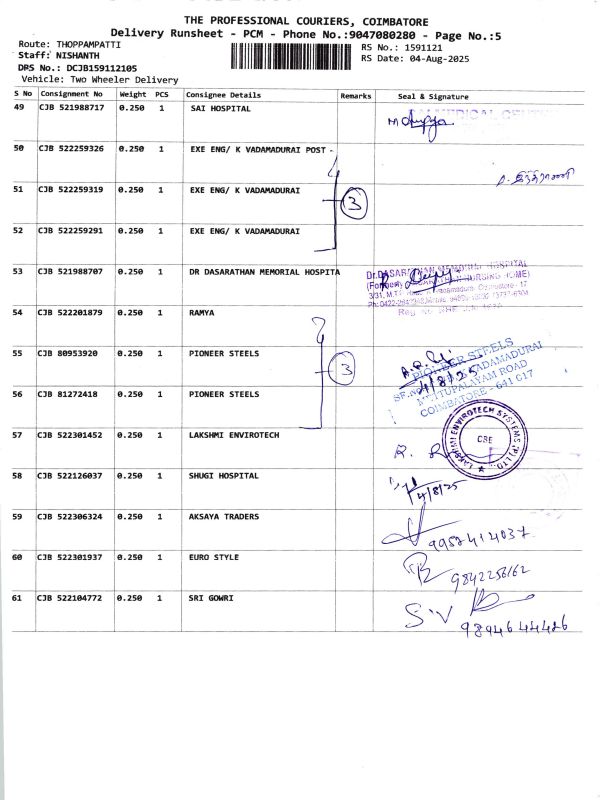 THE PROFESSIONAL COURIERS, COIMBATORE
Delivery Runsheet - PCM - Phone No.:9047080280 - Page No.:5
Route: THOPPAMPATTI
RS No.: 1591121
Staff: NISHANTH
RS Date: 04-Aug-2025
DRS No.: DCJB159112105
Vehicle: Two Wheeler Delivery
S No Consignment No Weight PCS Consignee Details Remarks Seal & Signature
49 CJB 521988717 0.250 1 SAI HOSPITAL
50 CJB 522259326 0.250 1 EXE ENG/ K VADAMADURAI POST -
51 CJB 522259319 0.250 1 EXE ENG/ K VADAMADURAI
3
52 CJB 522259291 0.250 1 EXE ENG/ K VADAMADURAI
53 CJB 521988707 0.250 1 DR DASARATHAN MEMORIAL HOSPITA
Dr.DASARATHAN MEMORIAL HOSPITAL
NURSING HOME)
54 CJB 522201879 0.250 1 RAMYA
55 CJB 80953920 0.250 1 PIONEER STEELS
3
PIONEER STEELS
4/8/25
VADAMADURAI
METTUPALAYAM ROAD
COIMBATORE - 641 017
56 CJB 81272418 0.250 1 PIONEER STEELS
57 CJB 522301452 0.250 1 LAKSHMI ENVIROTECH
LAKSHMI ENVIROTECH SYSTEMS (P) LTD.,
CBE
58 CJB 522126037 0.250 1 SHUGI HOSPITAL
4/8/25
59 CJB 522306324 0.250 1 AKSAYA TRADERS
9952414037
60 CJB 522301937 0.250 1 EURO STYLE
9842256162
61 CJB 522104772 0.250 1 SRI GOWRI
S.V
9894644426